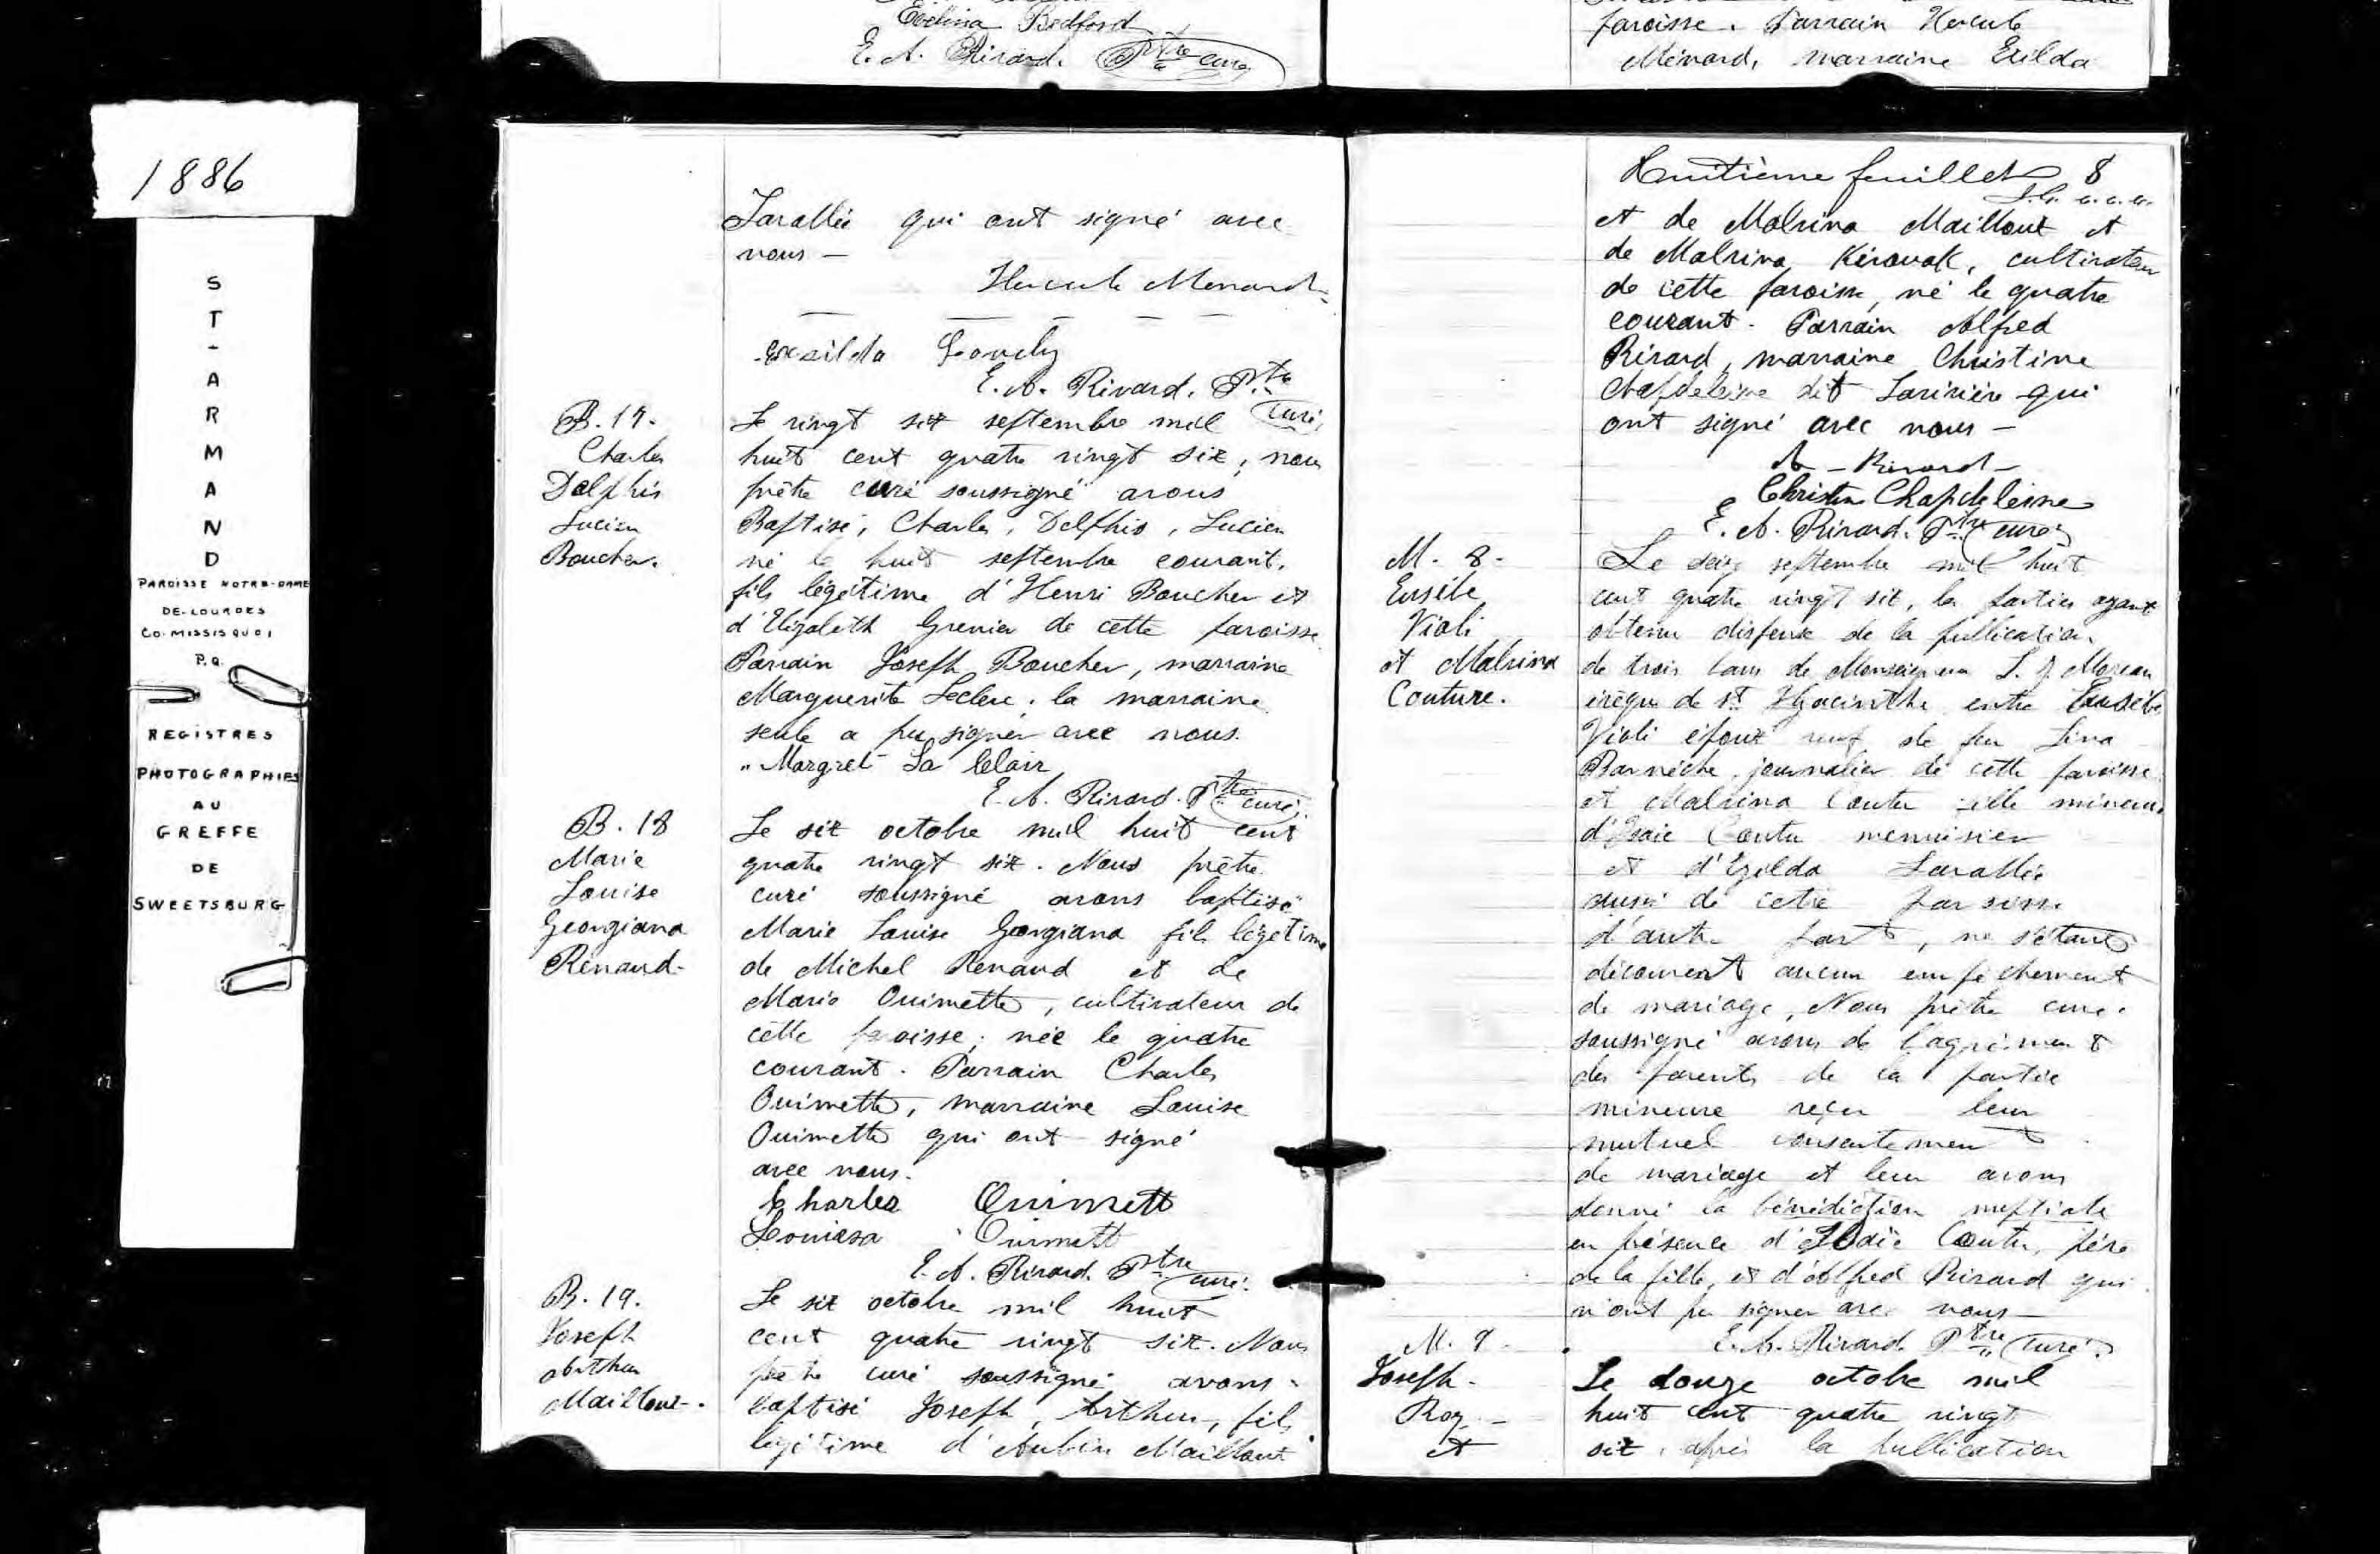 Evelina Bedford
E. A. Rivard. Ptre curé
paroisse. Parrain Hercule
Ménard, marraine Exilda
1886
ST-ARMAND
PAROISSE NOTRE-DAME
DE-LOURDES
CO. MISSISQUOI
P.Q.
REGISTRES
PHOTOGRAPHIES
AU
GREFFE
DE
SWEETSBURG
Lavallée qui ont signé avec
nous —
Hercule Menard
Exsilda
E. A. Rivard. Ptre
curé
B. 17.
Charles
Delphis
Lucien
Boucher.
Le vingt six septembre mil
huit cent quatre vingt six, nous
prêtre curé soussigné avons
Baptisé, Charles, Delphis, Lucien
né le huit septembre courant,
fils légitime d'Henri Boucher et
d'Elizabeth Grenier de cette paroisse
Parrain Joseph Boucher, marraine
Marguerite Leclerc, la marraine
seule a pu signer avec nous.
Margret La Clair
E. A. Rivard. Ptre curé.
B. 18
Marie
Louise
Georgiana
Renaud.
Le six octobre mil huit cent
quatre vingt six. Nous prêtre
curé soussigné avons baptisé
Marie Louise Georgiana fils légitime
de Michel Renaud et de
Marie Ouimette, cultivateur de
cette paroisse, née le quatre
courant. Parrain Charles
Ouimette, marraine Louise
Ouimette qui ont signé
avec nous.
Charles Ouimett
Louiesa Ouimett
E. A. Rivard. Ptre curé.
B. 19.
Joseph
Arthur
Mailloux.
Le six octobre mil huit
cent quatre vingt six. Nous
prêtre curé soussigné avons
baptisé Joseph, Arthur, fils
légitime d'Aubin Mailloux
Huitième feuillet 8
et de Malvina Mailloux et
de Malvina Kérouak, cultivateur
de cette paroisse, né le quatre
courant. Parrain Alfred
Rivard, marraine Christine
Chapdeleine dit Larivière qui
ont signé avec nous —
A - Rivard -
Christin Chapdeleine
E. A. Rivard. Ptre curé
M. 8.
Eusèbe
Viali
et Malvina
Couture.
Le seize septembre mil huit
cent quatre vingt six, les parties ayant
obtenu dispense de la publication
de trois bans de Monseigneur L. Z. Moreau
évêque de St Hyacinthe entre Eusèbe
Viali époux veuf de feu Lina
Barnèche, journalier de cette paroisse
et Malvina Coutu fille mineure
d'Isaie Coutu menuisier
et d'Exilda Lavallée
aussi de cette paroisse
d'autre part, ne s'étant
découvert aucun empêchement
de mariage, Nous prêtre curé
soussigné avons de l'agrément
des parents de la partie
mineure reçu leur
mutuel consentement
de mariage et leur avons
donné la bénédiction nuptiale
en présence d'Isaie Coutu, père
de la fille, et d'Alfred Rivard qui
n'ont pu signer avec nous —
E. A. Rivard. Ptre curé.
M. 9.
Joseph
Roy
et
Le douze octobre mil
huit cent quatre vingt
six, après la publication